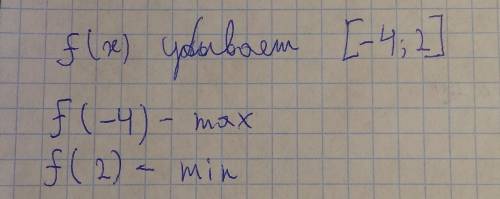 f(x) убывает [-4; 2]
f(-4) - max
f(2) - min